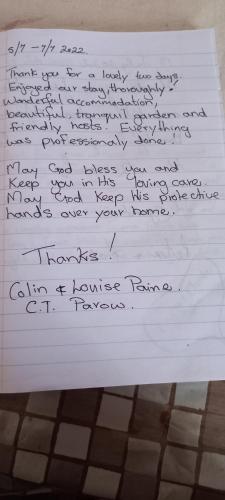 5/7 - 7/7 2022.
Thank you for a lovely two days.
Enjoyed our stay, thoroughly!
Wonderful accommodation,
beautiful, tranquil garden and
friendly hosts. Everything
was professionaly done!
May God bless you and
Keep you in His loving care.
May God Keep His protective
hands over your home.
Thanks!
Colin & Louise Paine.
C.T. Parow.